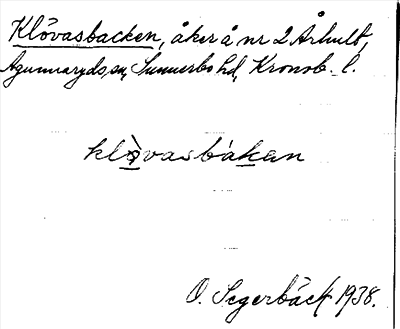 Klövasbacken, åker å nr 2 Århult,
Agunnaryds sn, Sunnerbo hd, Kronob. l.
klòvasbákan
O. Segerbäck 1938.